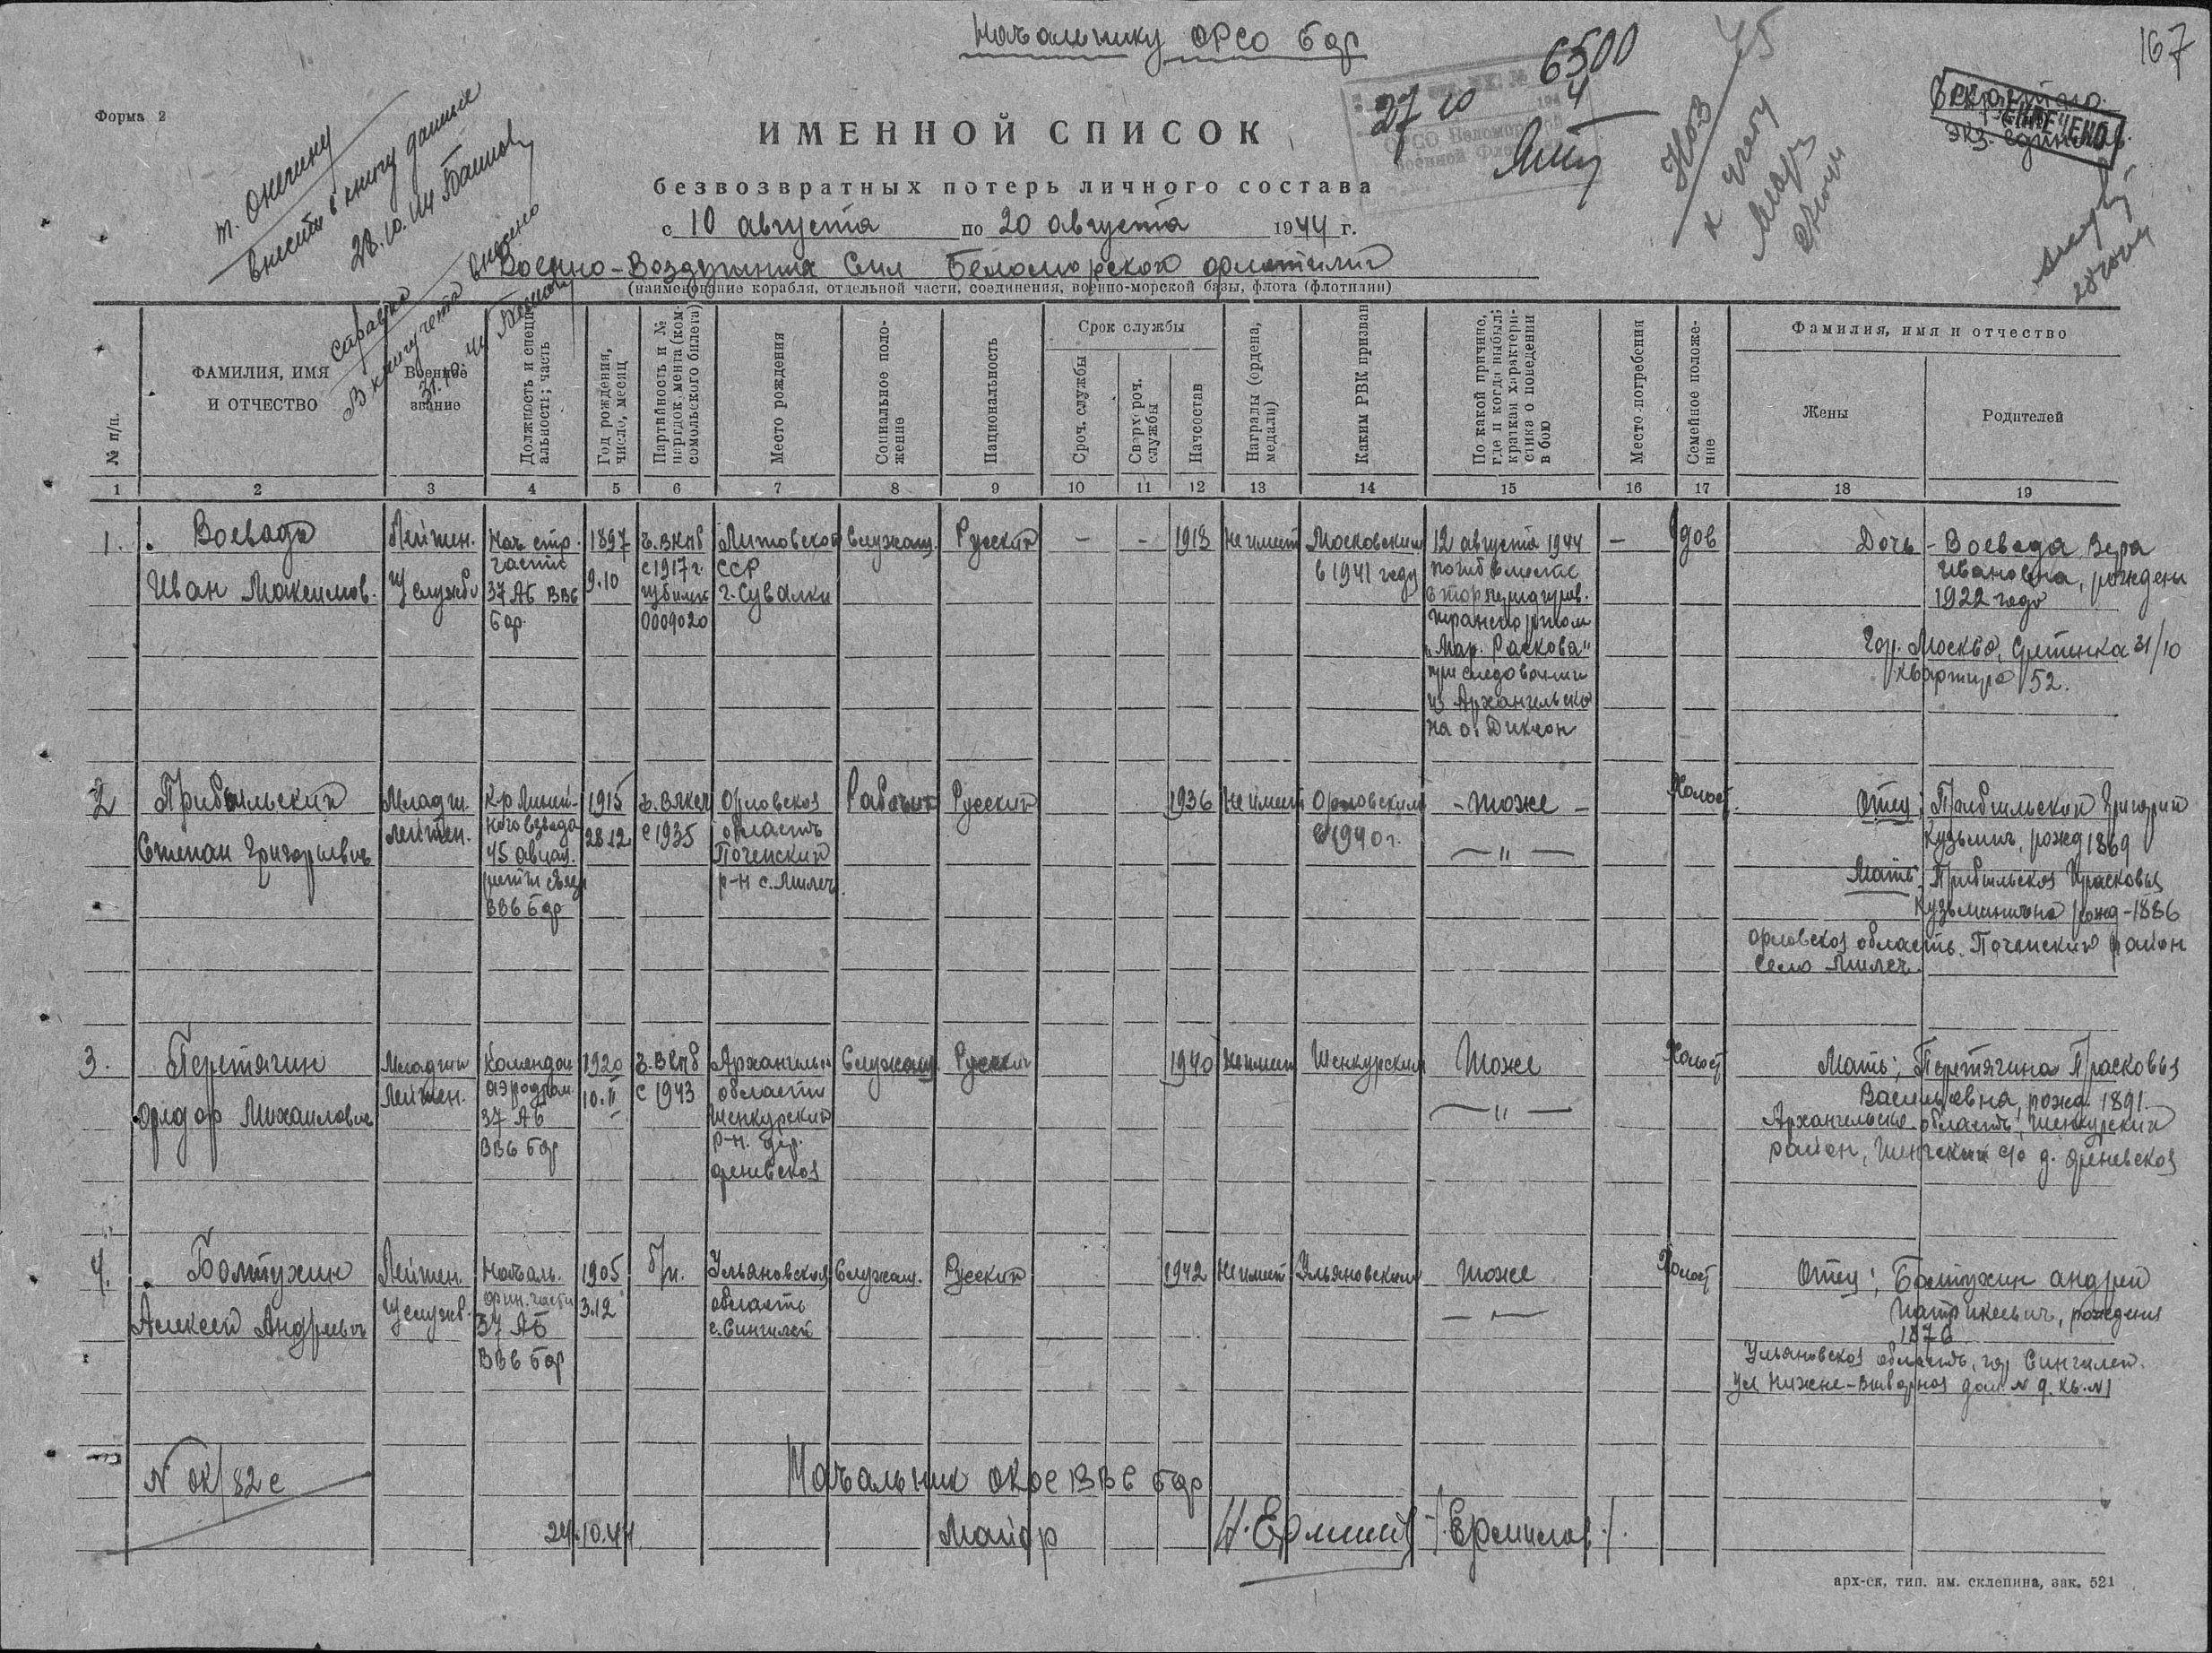 Начальнику ОРСО БФ
6500
45
167
27 10 4
Форма 2
т. Онегину
внести в книгу данные
28.10.44
ИМЕННОЙ СПИСОК
безвозвратных потерь личного состава
с 10 августа по 20 августа 1944 г.
Военно-Воздушных Сил Беломорской флотилии
(наименование корабля, отдельной части, соединения, военно-морской базы, флота (флотилии)
В книгу учета внесено
31.10.44
№ п/п.
ФАМИЛИЯ, ИМЯ И ОТЧЕСТВО
Военное звание
Должность и специальность; часть
Год рождения, число, месяц
Партийность и № партдокумента (комсомольского билета)
Место рождения
Социальное положение
Национальность
Срок службы
Сроч. службы
Сверхсроч. службы
Начсостав
Награды (ордена, медали)
Каким РВК призван
По какой причине, где и когда выбыл; краткая характеристика о поведении в бою
Место погребения
Семейное положение
Фамилия, имя и отчество
Жены
Родителей
1 2 3 4 5 6 7 8 9 10 11 12 13 14 15 16 17 18 19
1. Воевода
Иван Максимов.
Лейтен.
и/службы
Нач стр.
части
37 АБ ВВС
БФ.
1897
9.10
ч. ВКПб
с 1917 г.
п/билет
0009020
Литовской
ССР
г. Сувалки
Служащ.
Русский
-
-
1918
Не имеет
Московским
в 1941 году
12 августа 1944
погиб вместе
с торпедиров.
транспортом
"Мар. Раскова"
при следовании
из Архангельска
на о. Диксон
-
Вдов
Дочь - Воевода Вера
Ивановна, рождени
1922 года
Гор. Москва, Сретенка 31/10
квартира 52.
2 Прибыльский
Степан Григорьевич
Младш.
лейтен.
К-р Линей-
ного взвода
45 авиац.
роты связи
ВВС БФ
1915
28.12
ч. ВЛКСМ
с 1935
Орловская
область
Почепский
р-н с. Милеч.
Рабочий
Русский
1936
Не имеет
Орловским
в 1940 г.
- тоже -
— " —
Холост.
Отец: Прибыльский Григорий
Кузьмич, рожд 1869
Мать: Прибыльская Прасковья
Кузьминична рожд - 1886
Орловская область. Почепский район
Село Милеч.
3. Перетягин
Федор Михайлович
Младший
Лейтен.
Комендан
аэродром.
37 АБ
ВВС БФ
1920
10.II
ч. ВКПб
с 1943
Архангельс
области
Шенкурский
р-н. дер.
Феневская
Служащ
Русский
1940
Не имеет
Шенкурским
Тоже
— " —
Холост
Мать: Перетягина Прасковья
Васильевна, рожд. 1891
Архангельская область, Шенкурский
район, с/с д. Феневская
4. Болтухин
Алексей Андреевич
Лейтен.
и/служб.
Началь.
фин. части
37 АБ
ВВС БФ
1905
3.12
б/п.
Ульяновская
область
с. Сингилей
Служащ.
Русский
1942
Не имеет
Ульяновским
Тоже
— —
Холост
Отец: Болтухин Андрей
Патрикеевич, рождения
1876
Ульяновская область, гор Сингилей.
ул Нижне-Выборная дом № 9. кв. №1
N ОК/82с
24.10.44
Начальник ОКОС ВВС БФ
Майор
/Ермилов/.
арх-ск, тип. им. склепина, зак. 521